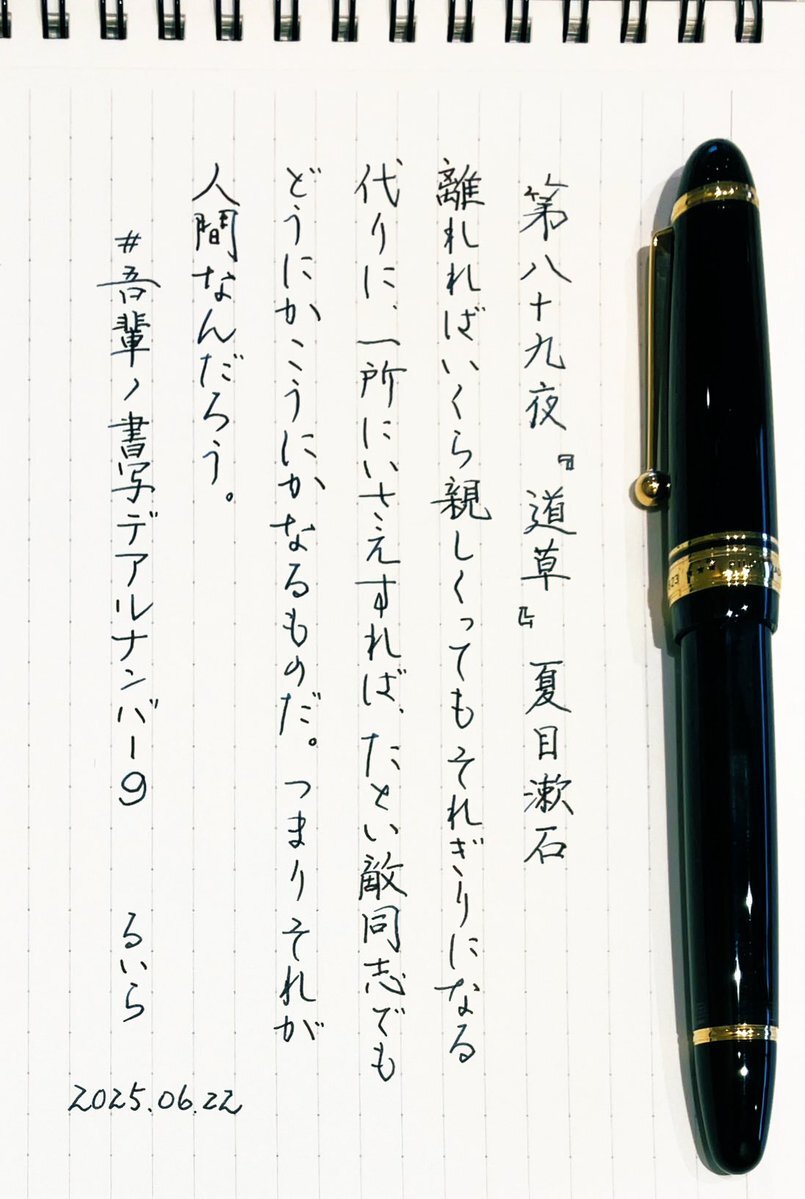 第八十九夜『道草』夏目漱石
離れればいくら親しくってもそれぎりになる
代りに、一所にいさえすれば、たとい敵同志でも
どうにかこうにかなるものだ。つまりそれが
人間なんだろう。
#吾輩ノ書写デアルナンバー9
るいら
2025.06.22